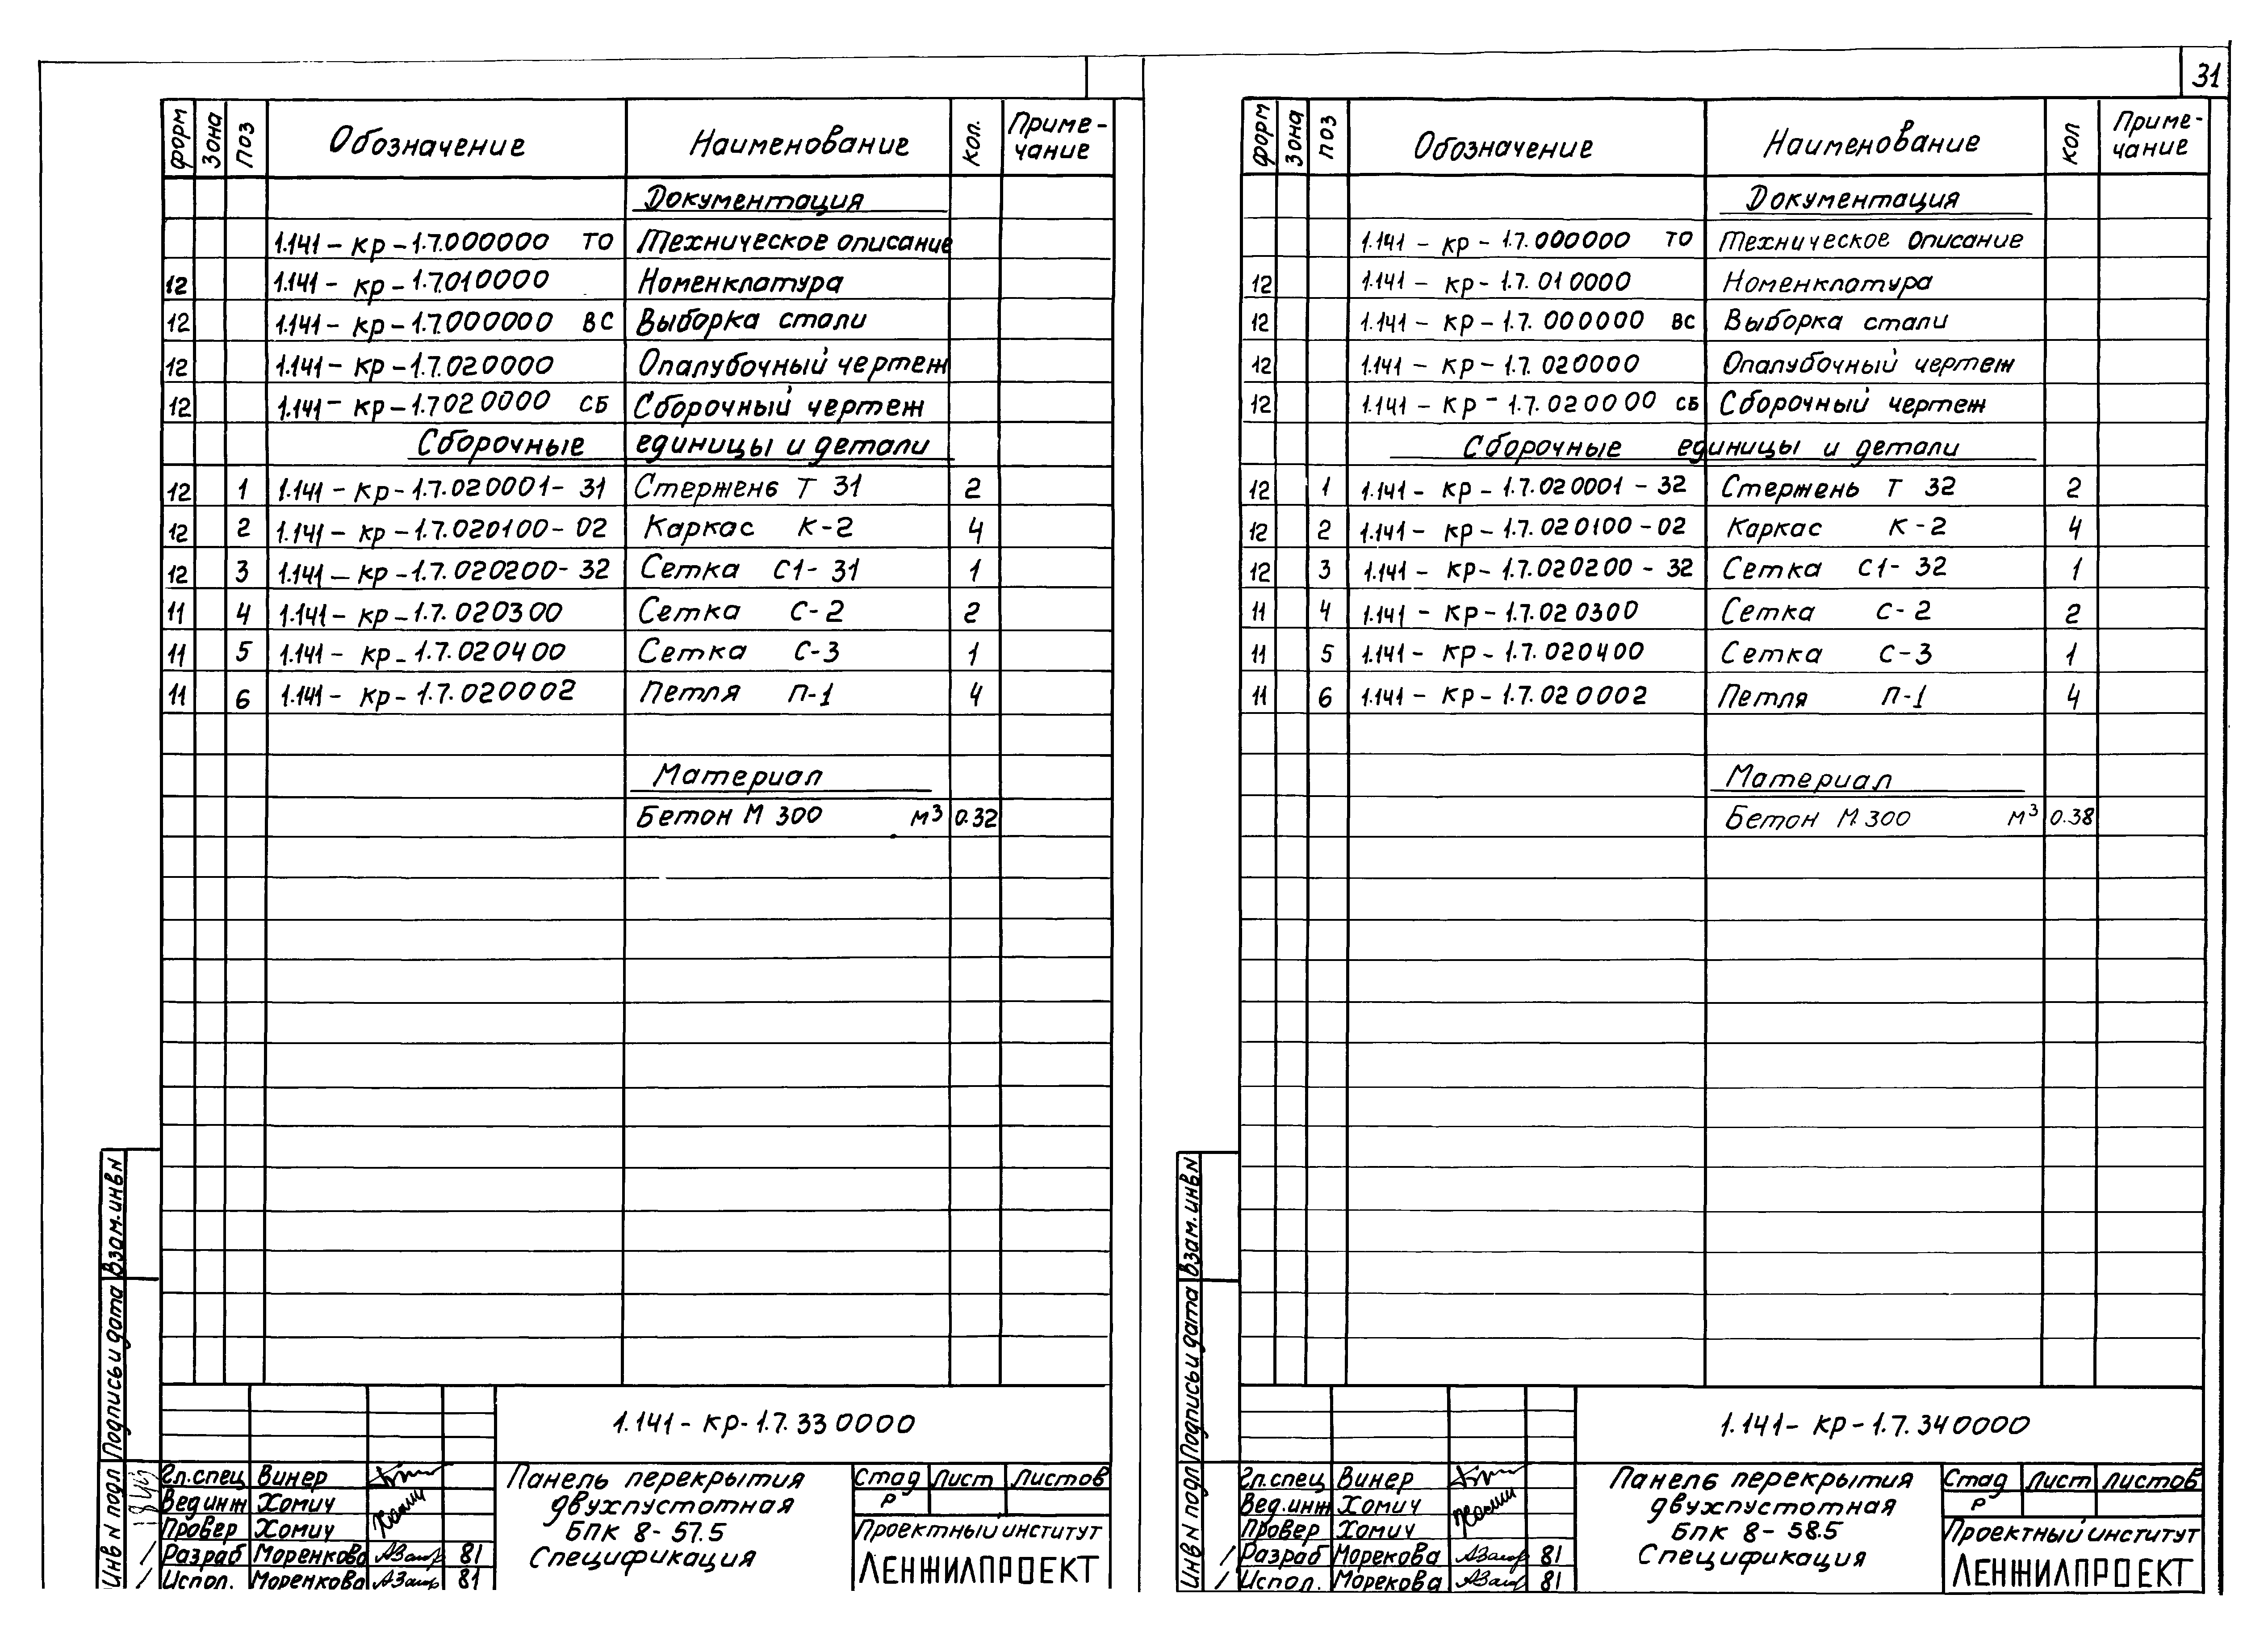 31
форм Зона Поз Обозначение Наименование Кол. Приме-
чание
Документация
1.141-кр-1.7.000000 ТО Техническое описание
12 1.141-кр-1.7.010000 Номенклатура
12 1.141-кр-1.7.000000 ВС Выборка стали
12 1.141-кр-1.7.020000 Опалубочный чертеж
12 1.141-кр-1.7020000 СБ Сборочный чертеж
Сборочные единицы и детали
12 1 1.141-кр-1.7.020001-31 Стержень Т 31 2
12 2 1.141-кр-1.7.020100-02 Каркас К-2 4
12 3 1.141-кр-1.7.020200-32 Сетка С1-31 1
11 4 1.141-кр-1.7.020300 Сетка С-2 2
11 5 1.141-кр-1.7.020400 Сетка С-3 1
11 6 1.141-кр-1.7.020002 Петля П-1 4
Материал
Бетон М 300 м³ 0.32
Взам.инвN
Подпись и дата
Инв N подл
1.141-кр-1.7.330000
Гл.спец Винер
Вед инж Хомич
Провер Хомич
Разраб Моренкова 81
Испол. Моренкова 81
Панель перекрытия
двухпустотная
БПК 8-57.5
Спецификация
Стад Лист Листов
Р
Проектный институт
ЛЕНЖИЛПРОЕКТ
форм Зона Поз Обозначение Наименование Кол Приме-
чание
Документация
1.141-кр-1.7.000000 ТО Техническое описание
12 1.141-кр-1.7.010000 Номенклатура
12 1.141-кр-1.7.000000 ВС Выборка стали
12 1.141-кр-1.7.020000 Опалубочный чертеж
12 1.141-кр-1.7.020000 СБ Сборочный чертеж
Сборочные единицы и детали
12 1 1.141-кр-1.7.020001-32 Стержень Т 32 2
12 2 1.141-кр-1.7.020100-02 Каркас К-2 4
12 3 1.141-кр-1.7.020200-32 Сетка С1-32 1
11 4 1.141-кр-1.7.020300 Сетка С-2 2
11 5 1.141-кр-1.7.020400 Сетка С-3 1
11 6 1.141-кр-1.7.020002 Петля П-1 4
Материал
Бетон М.300 м³ 0.38
Взам.инвN
Подпись и дата
Инв N подл
1.141-кр-1.7.340000
Гл.спец Винер
Вед.инж Хомич
Провер Хомич
Разраб Морекова 81
Испол. Морекова 81
Панель перекрытия
двухпустотная
БПК 8-58.5
Спецификация
Стад Лист Листов
Р
Проектный институт
ЛЕНЖИЛПРОЕКТ